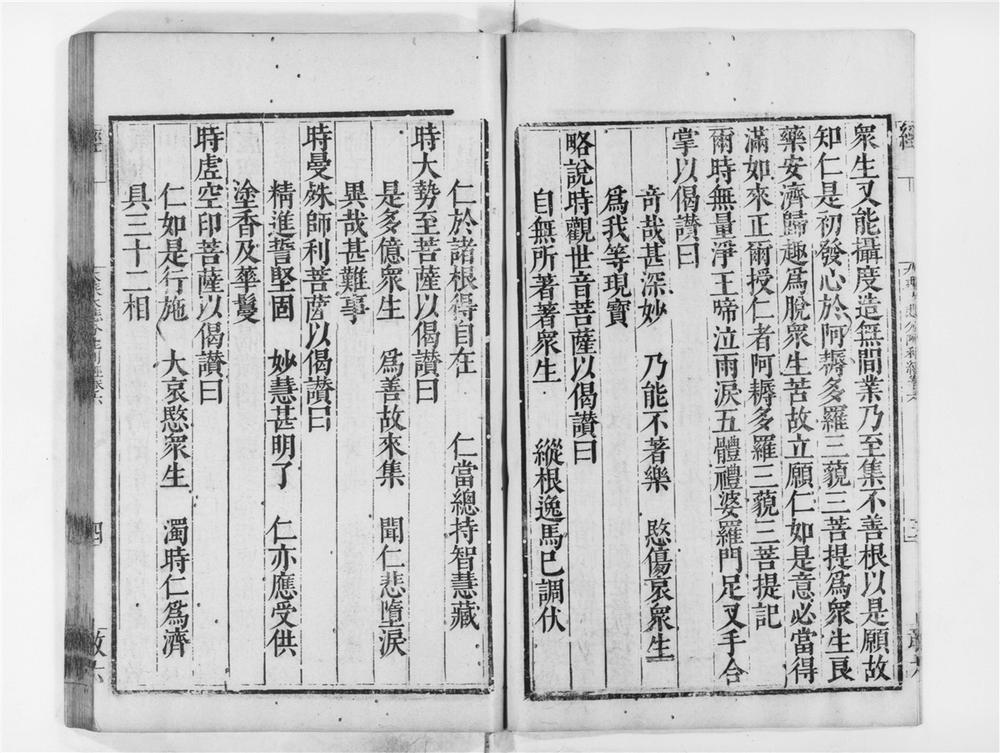 衆生又能攝度造無間業乃至集不善根以是願故
知仁是初發心於阿耨多羅三藐三菩提爲衆生良
藥安濟歸趣爲脫衆生苦故立願仁如是意必當得
滿如來正爾授仁者阿耨多羅三藐三菩提記
爾時無量淨王啼泣雨淚五體禮婆羅門足叉手合
掌以偈讃曰
奇哉甚深妙　乃能不著樂　愍傷哀衆生
爲我等現寶
略說時觀世音菩薩以偈讃曰
自無所著著衆生　縱根逸馬已調伏
仁於諸根得自在　仁當總持智慧藏
時大勢至菩薩以偈讃曰
是多億衆生　爲善故來集　聞仁悲墮淚
異哉甚難事
時曼殊師利菩薩以偈讃曰
精進誓堅固　妙慧甚明了　仁亦應受供
塗香及華鬘
時虛空印菩薩以偈讃曰
仁如是行施　大哀愍衆生　濁時仁爲濟
具三十二相
經
四